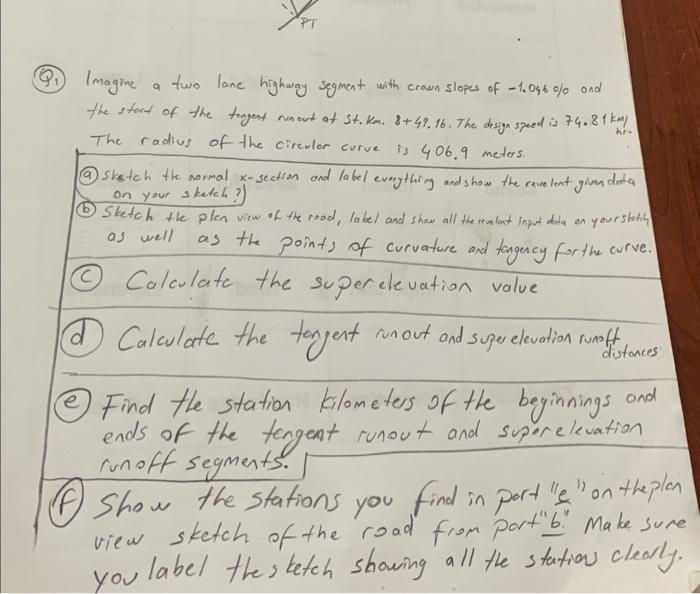 PT
Q1 Imagine a two lane highway segment with crown slopes of -1.046 % and
the start of the tangent runout at St. Km. 8+49.16. The design speed is 74.81 km/hr.
The radius of the circular curve is 406.9 meters.
(a) Sketch the normal x-section and label everything and show the revelent given data
on your sketch?
(b) Sketch the plan view of the road, label and show all the revelant input data on your sketch
as well as the points of curvature and tangency for the curve.
(c) Calculate the superelevation value
(d) Calculate the tangent runout and superelevation runoff
distances
(e) Find the station kilometers of the beginnings and
ends of the tangent runout and superelevation
runoff segments.
(f) Show the stations you find in part "e" on the plan
view sketch of the road from part "b." Make sure
you label the sketch showing all the stations clearly.